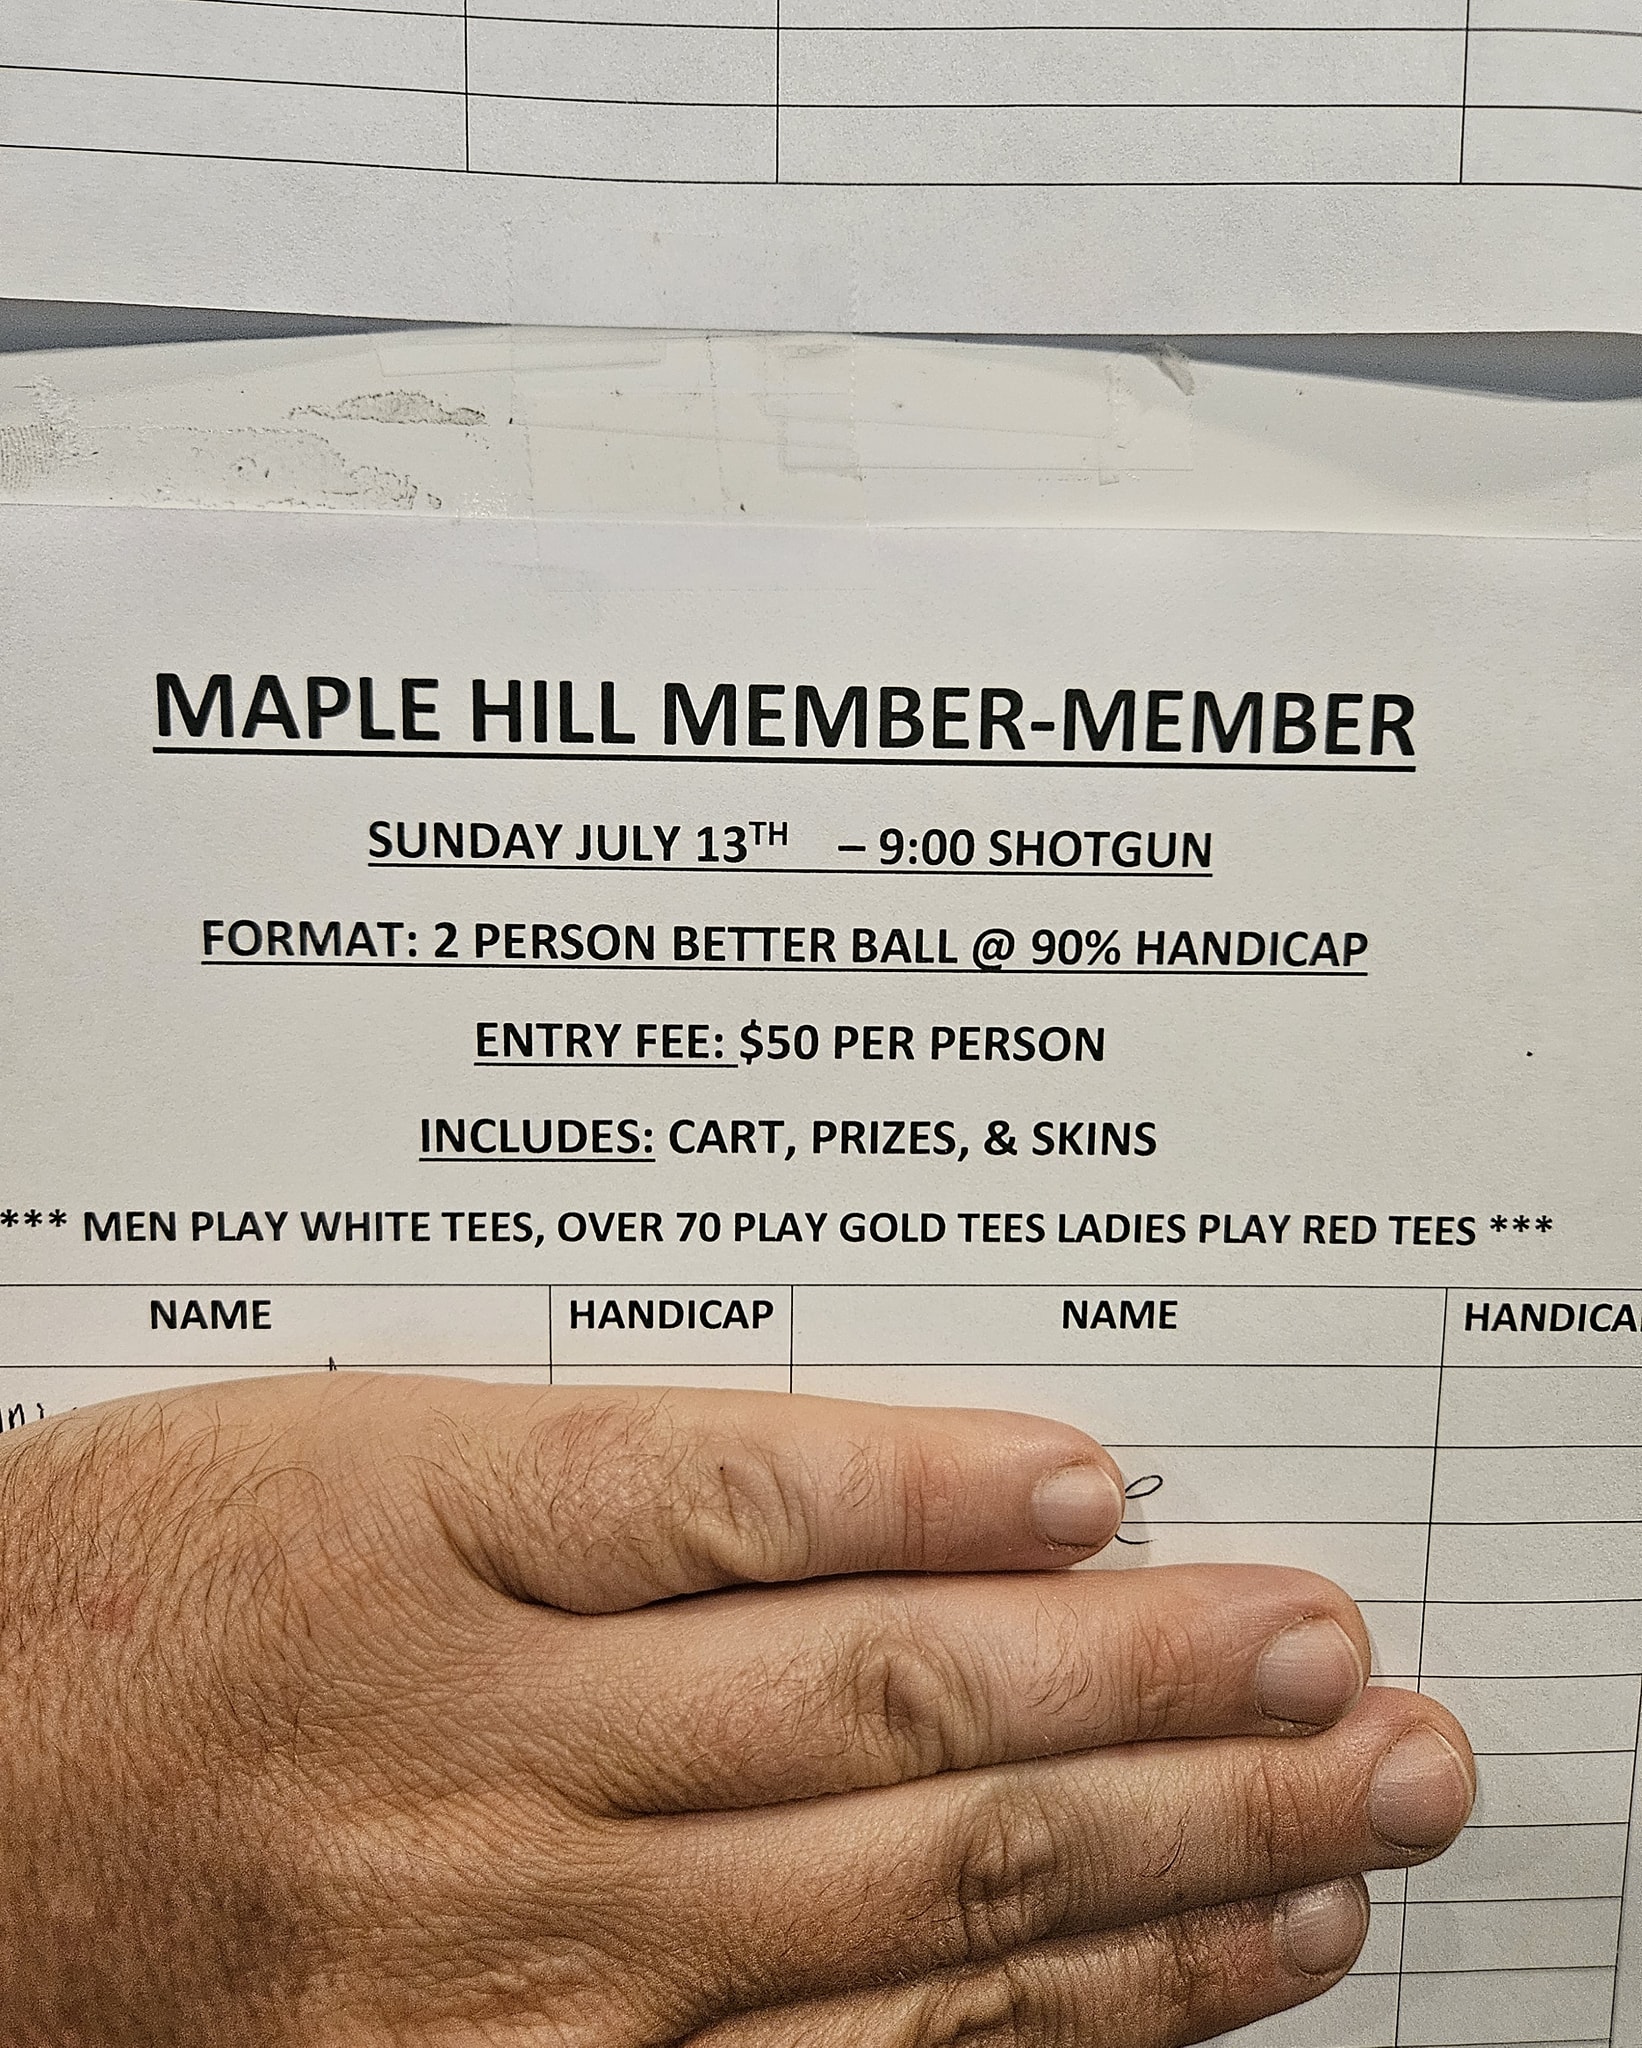 MAPLE HILL MEMBER-MEMBER
SUNDAY JULY 13TH – 9:00 SHOTGUN
FORMAT: 2 PERSON BETTER BALL @ 90% HANDICAP
ENTRY FEE: $50 PER PERSON
INCLUDES: CART, PRIZES, & SKINS
*** MEN PLAY WHITE TEES, OVER 70 PLAY GOLD TEES LADIES PLAY RED TEES ***
NAME HANDICAP NAME HANDICA